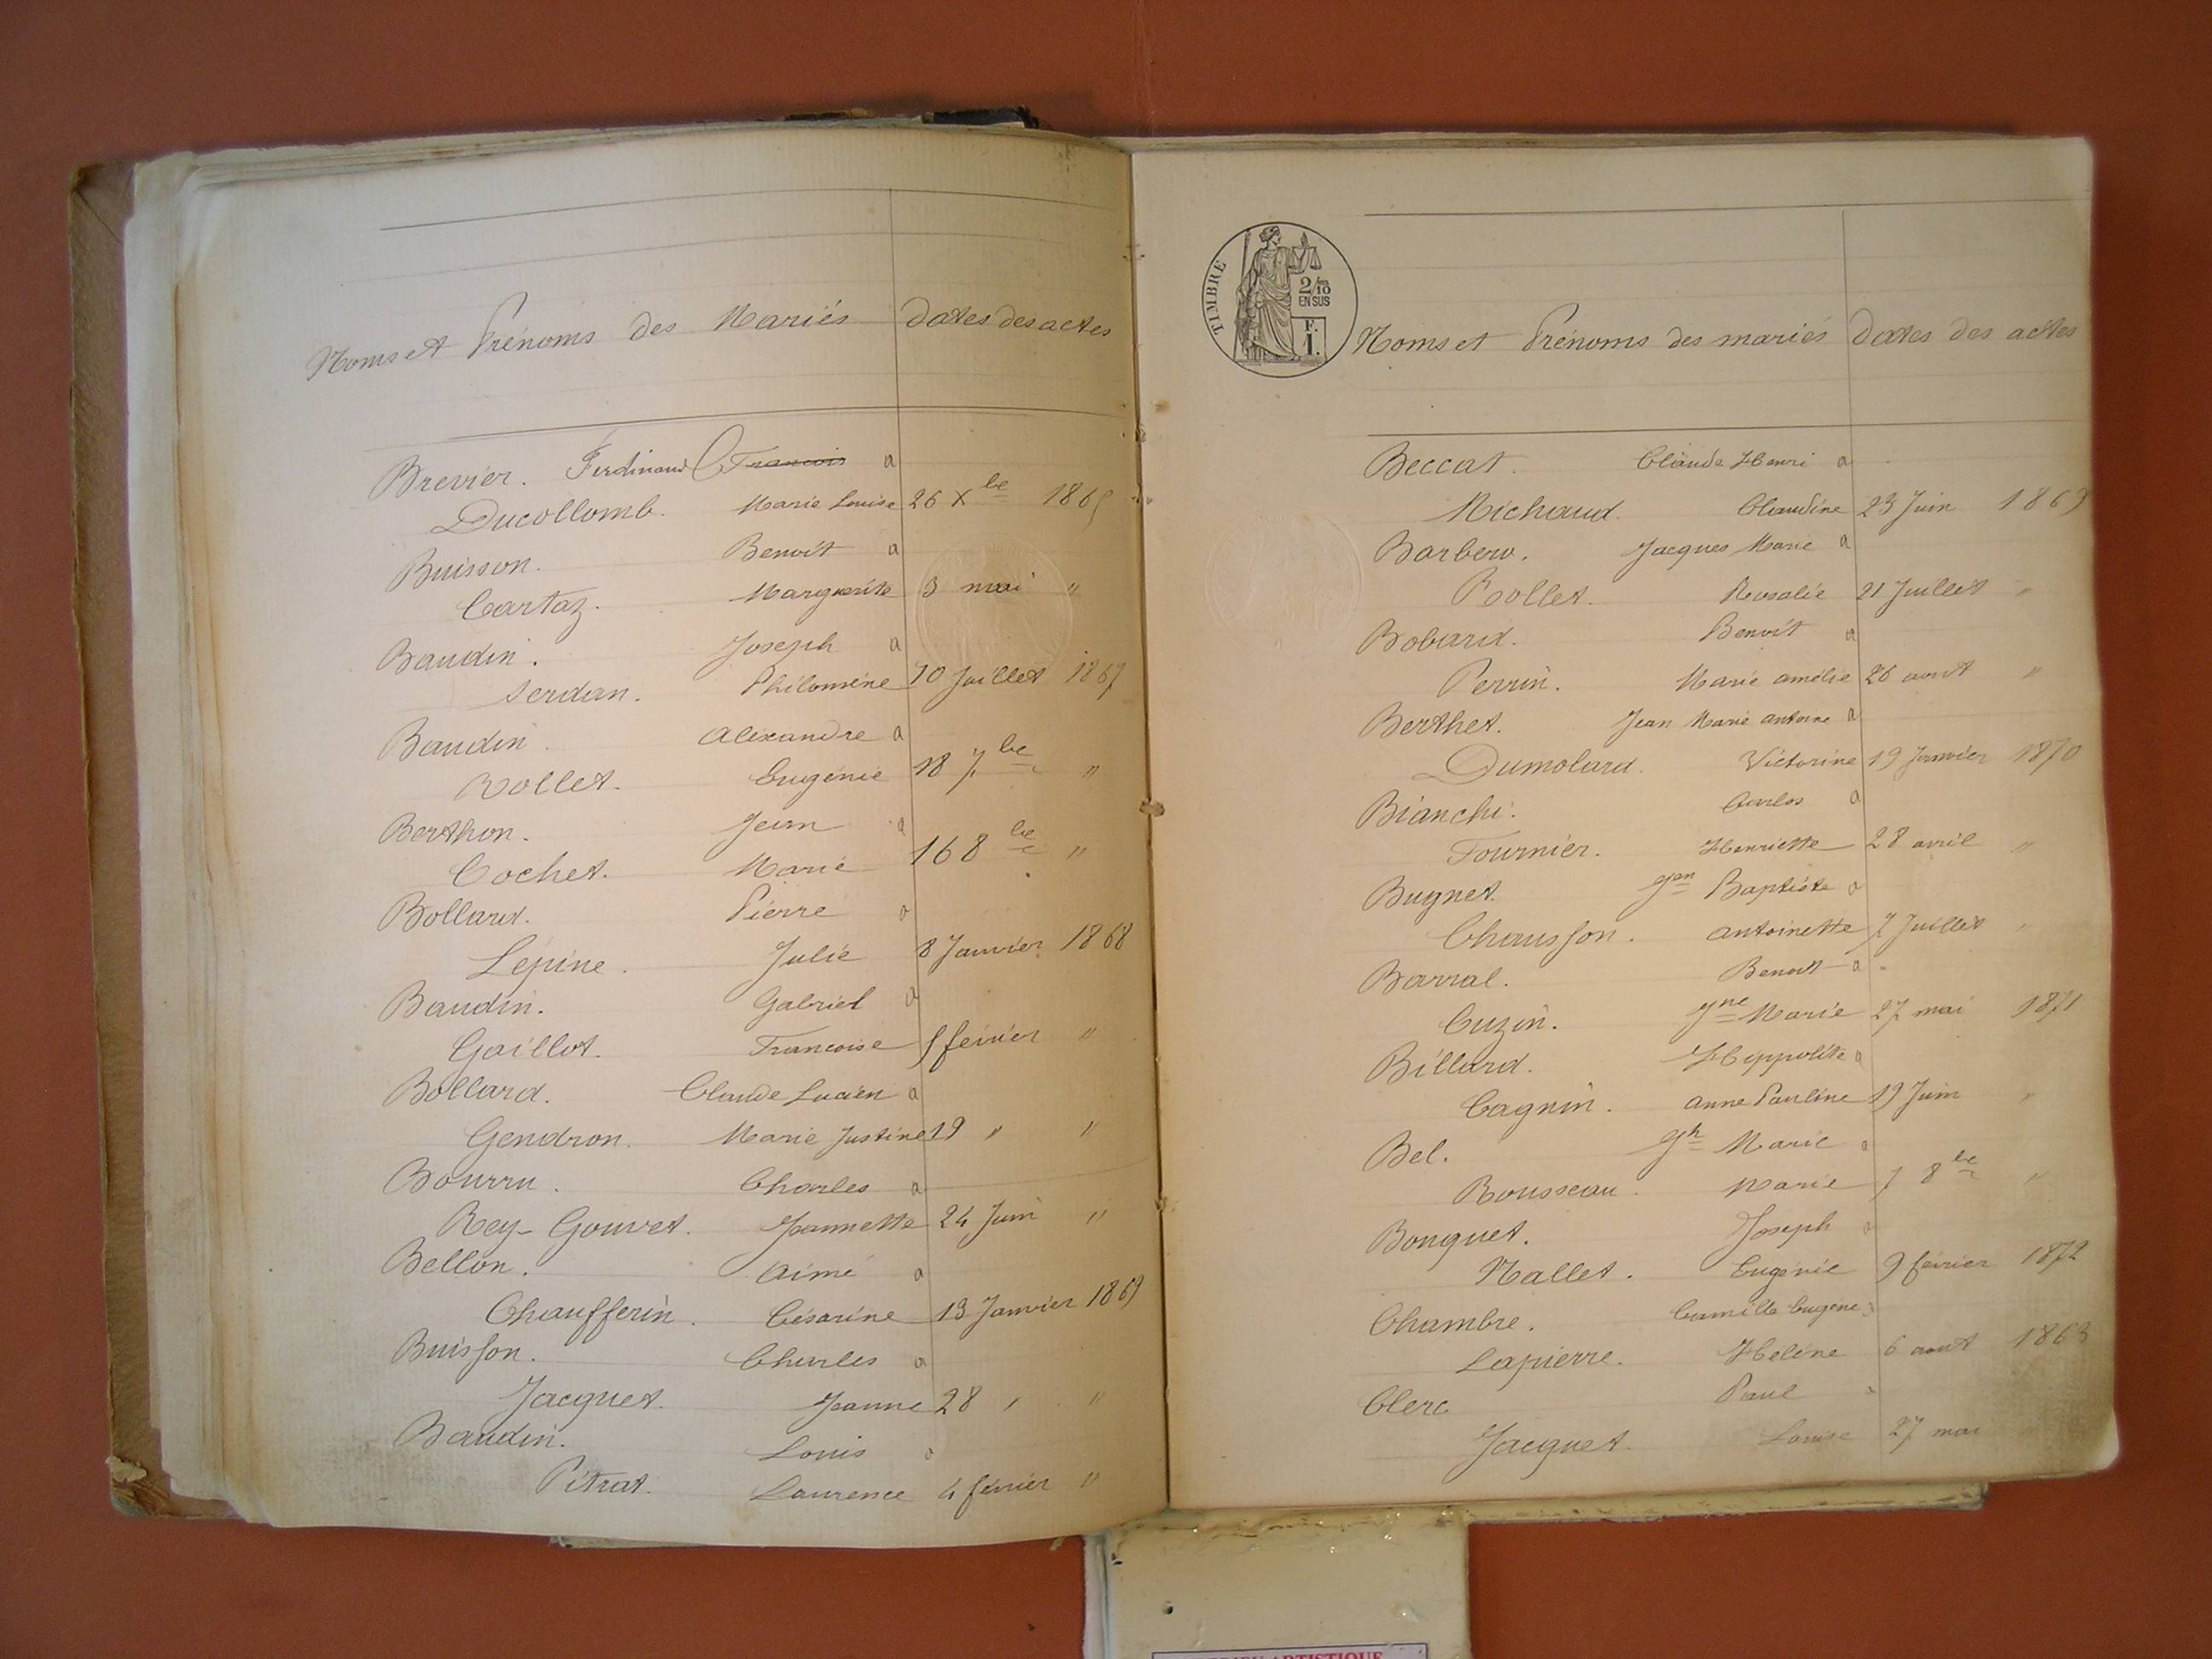 Noms et Prénoms des Mariés dates des actes
Brevier. Ferdinand François a
Ducollomb. Marie Louise 26 Xbe 1865
Buisson. Benoit a
Cartaz. Marguerite 3 mai "
Baudin. Joseph a
Serdan. Philomène 10 Juillet 1867
Baudin. Alexandre a
Rollet. Eugénie 18 7be "
Berthon. Jean a
Cochet. Marie 16 8be "
Bollard. Pierre a
Lépine. Julie 8 Janvier 1868
Baudin. Gabriel a
Gaillot. Francoise 5 février "
Bollard. Claude Lucien a
Gendron. Marie Justine 19 " "
Bourru. Charles a
Rey-Gouvet. Jeannette 24 Juin "
Bellon. Aimé a
Chaufferin. Césarine 13 Janvier 1869
Buisson. Charles a
Jacquet. Jeanne 28 " "
Baudin. Louis a
Pitrat. Laurence 4 février "
TIMBRE
2/10 EN SUS
F. 1.
Noms et Prénoms des mariés dates des actes
Beccat. Claude Henri a
Michaud. Claudine 23 Juin 1869
Barbero. Jacques Marie a
Rollet. Rosalie 21 Juillet "
Bobard. Benoit a
Perrin. Marie amélie 26 aout "
Berthet. Jean Marie antoine a
Dumolard. Victorine 19 Janvier 1870
Bianchi. Carlos a
Fournier. Henriette 28 avril "
Bugnet. Jean Baptiste a
Chausson. antoinette 7 Juillet "
Barral. Benoit a
Cuzin. Jne Marie 27 mai 1871
Billard. Hippolite a
Cagnin. anne Pauline 19 Juin "
Bel. Jh Marie a
Rousseau. Marie 7 8be "
Bouquet. Joseph a
Mallet. Eugénie 9 février 1872
Chambre. Camille Eugene a
Lapierre. Heléne 6 aout 1863
Clerc Paul a
Jacquet. Louise 27 mai